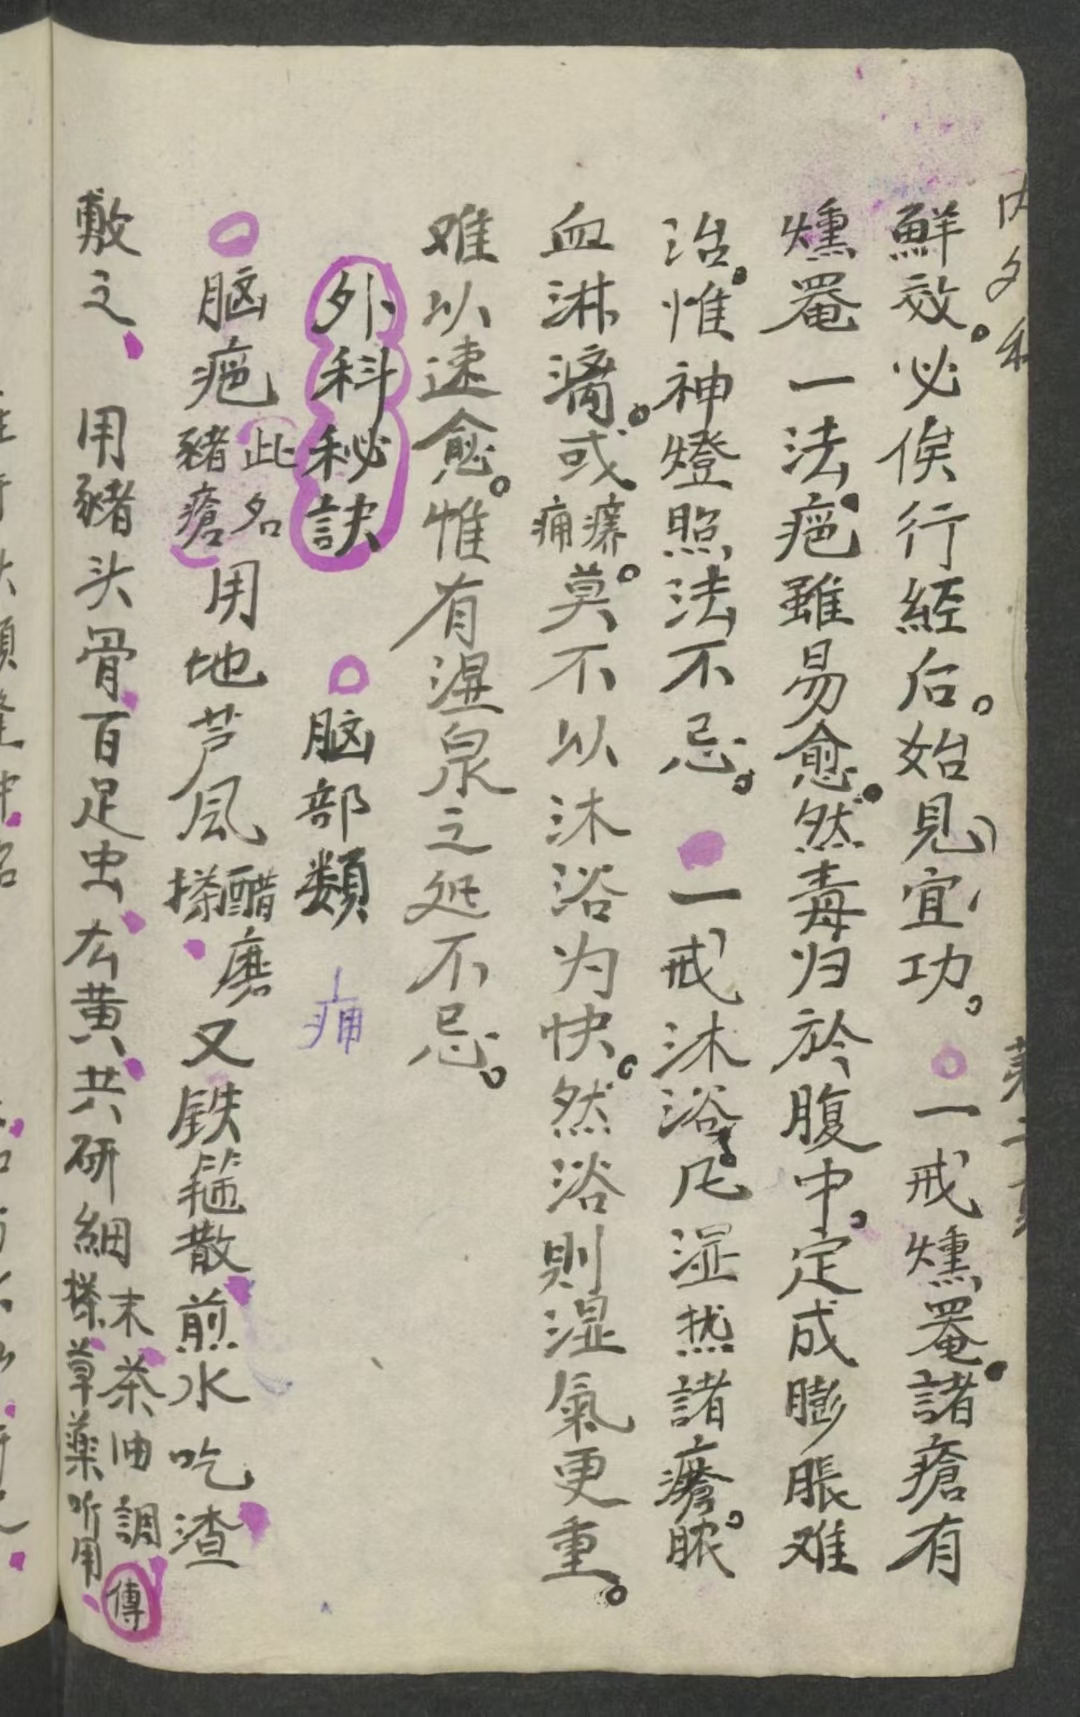 鮮效。必俟行經后。始見宜功。○一戒燻罨。諸瘡有
燻罨一法。疤雖易愈。然毒归於腹中。定成膨脹难
治。惟神燈照法不忌。一戒沐浴。凡湿热諸瘡。脓
血淋漓。或痛癢。莫不以沐浴为快。然浴則湿氣更重。
难以速愈。惟有温泉之处不忌。
外科秘訣 ○脑部類 痈
○脑疤此名豬瘡用地芦风搽醋磨又铁箍散煎水吃渣
敷之、用豬头骨百足虫厷黄共研細末茶油調搽草薬听用傳